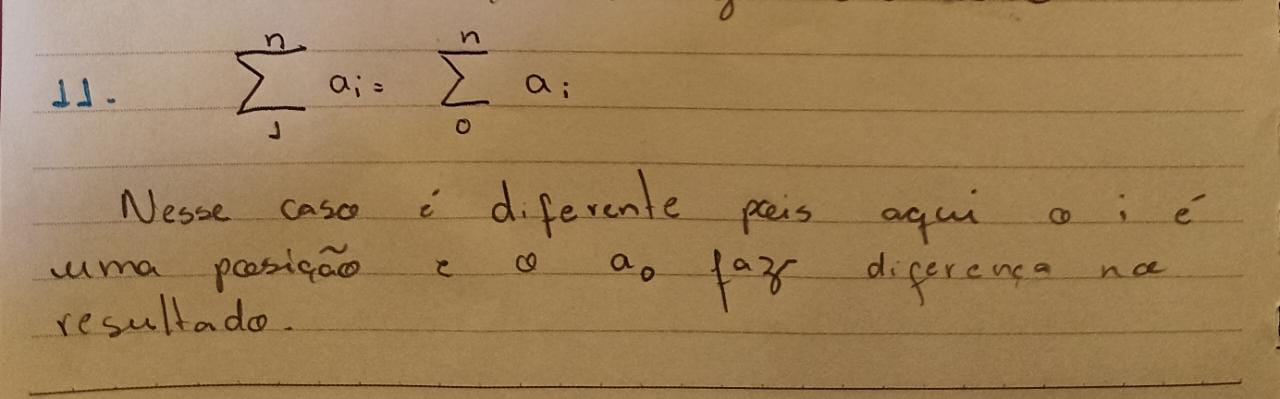 11. n∑1 aᵢ = n∑0 aᵢ
Nesse caso é diferente pois aqui o i é
uma posição e o a₀ faz diferença no
resultado.